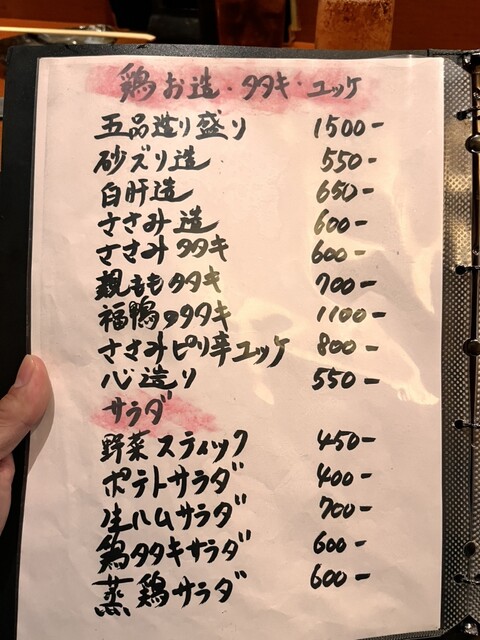 鶏お造・タタキ・ユッケ
五品造り盛り 1500-
砂ズリ造 550-
白肝造 650-
ささみ造 600-
ささみタタキ 600-
親ももタタキ 700-
福鴨のタタキ 1100-
ささみピリ辛ユッケ 800-
心造り 550-
サラダ
野菜スティック 450-
ポテトサラダ 400-
生ハムサラダ 700-
鶏タタキサラダ 600-
蒸鶏サラダ 600-